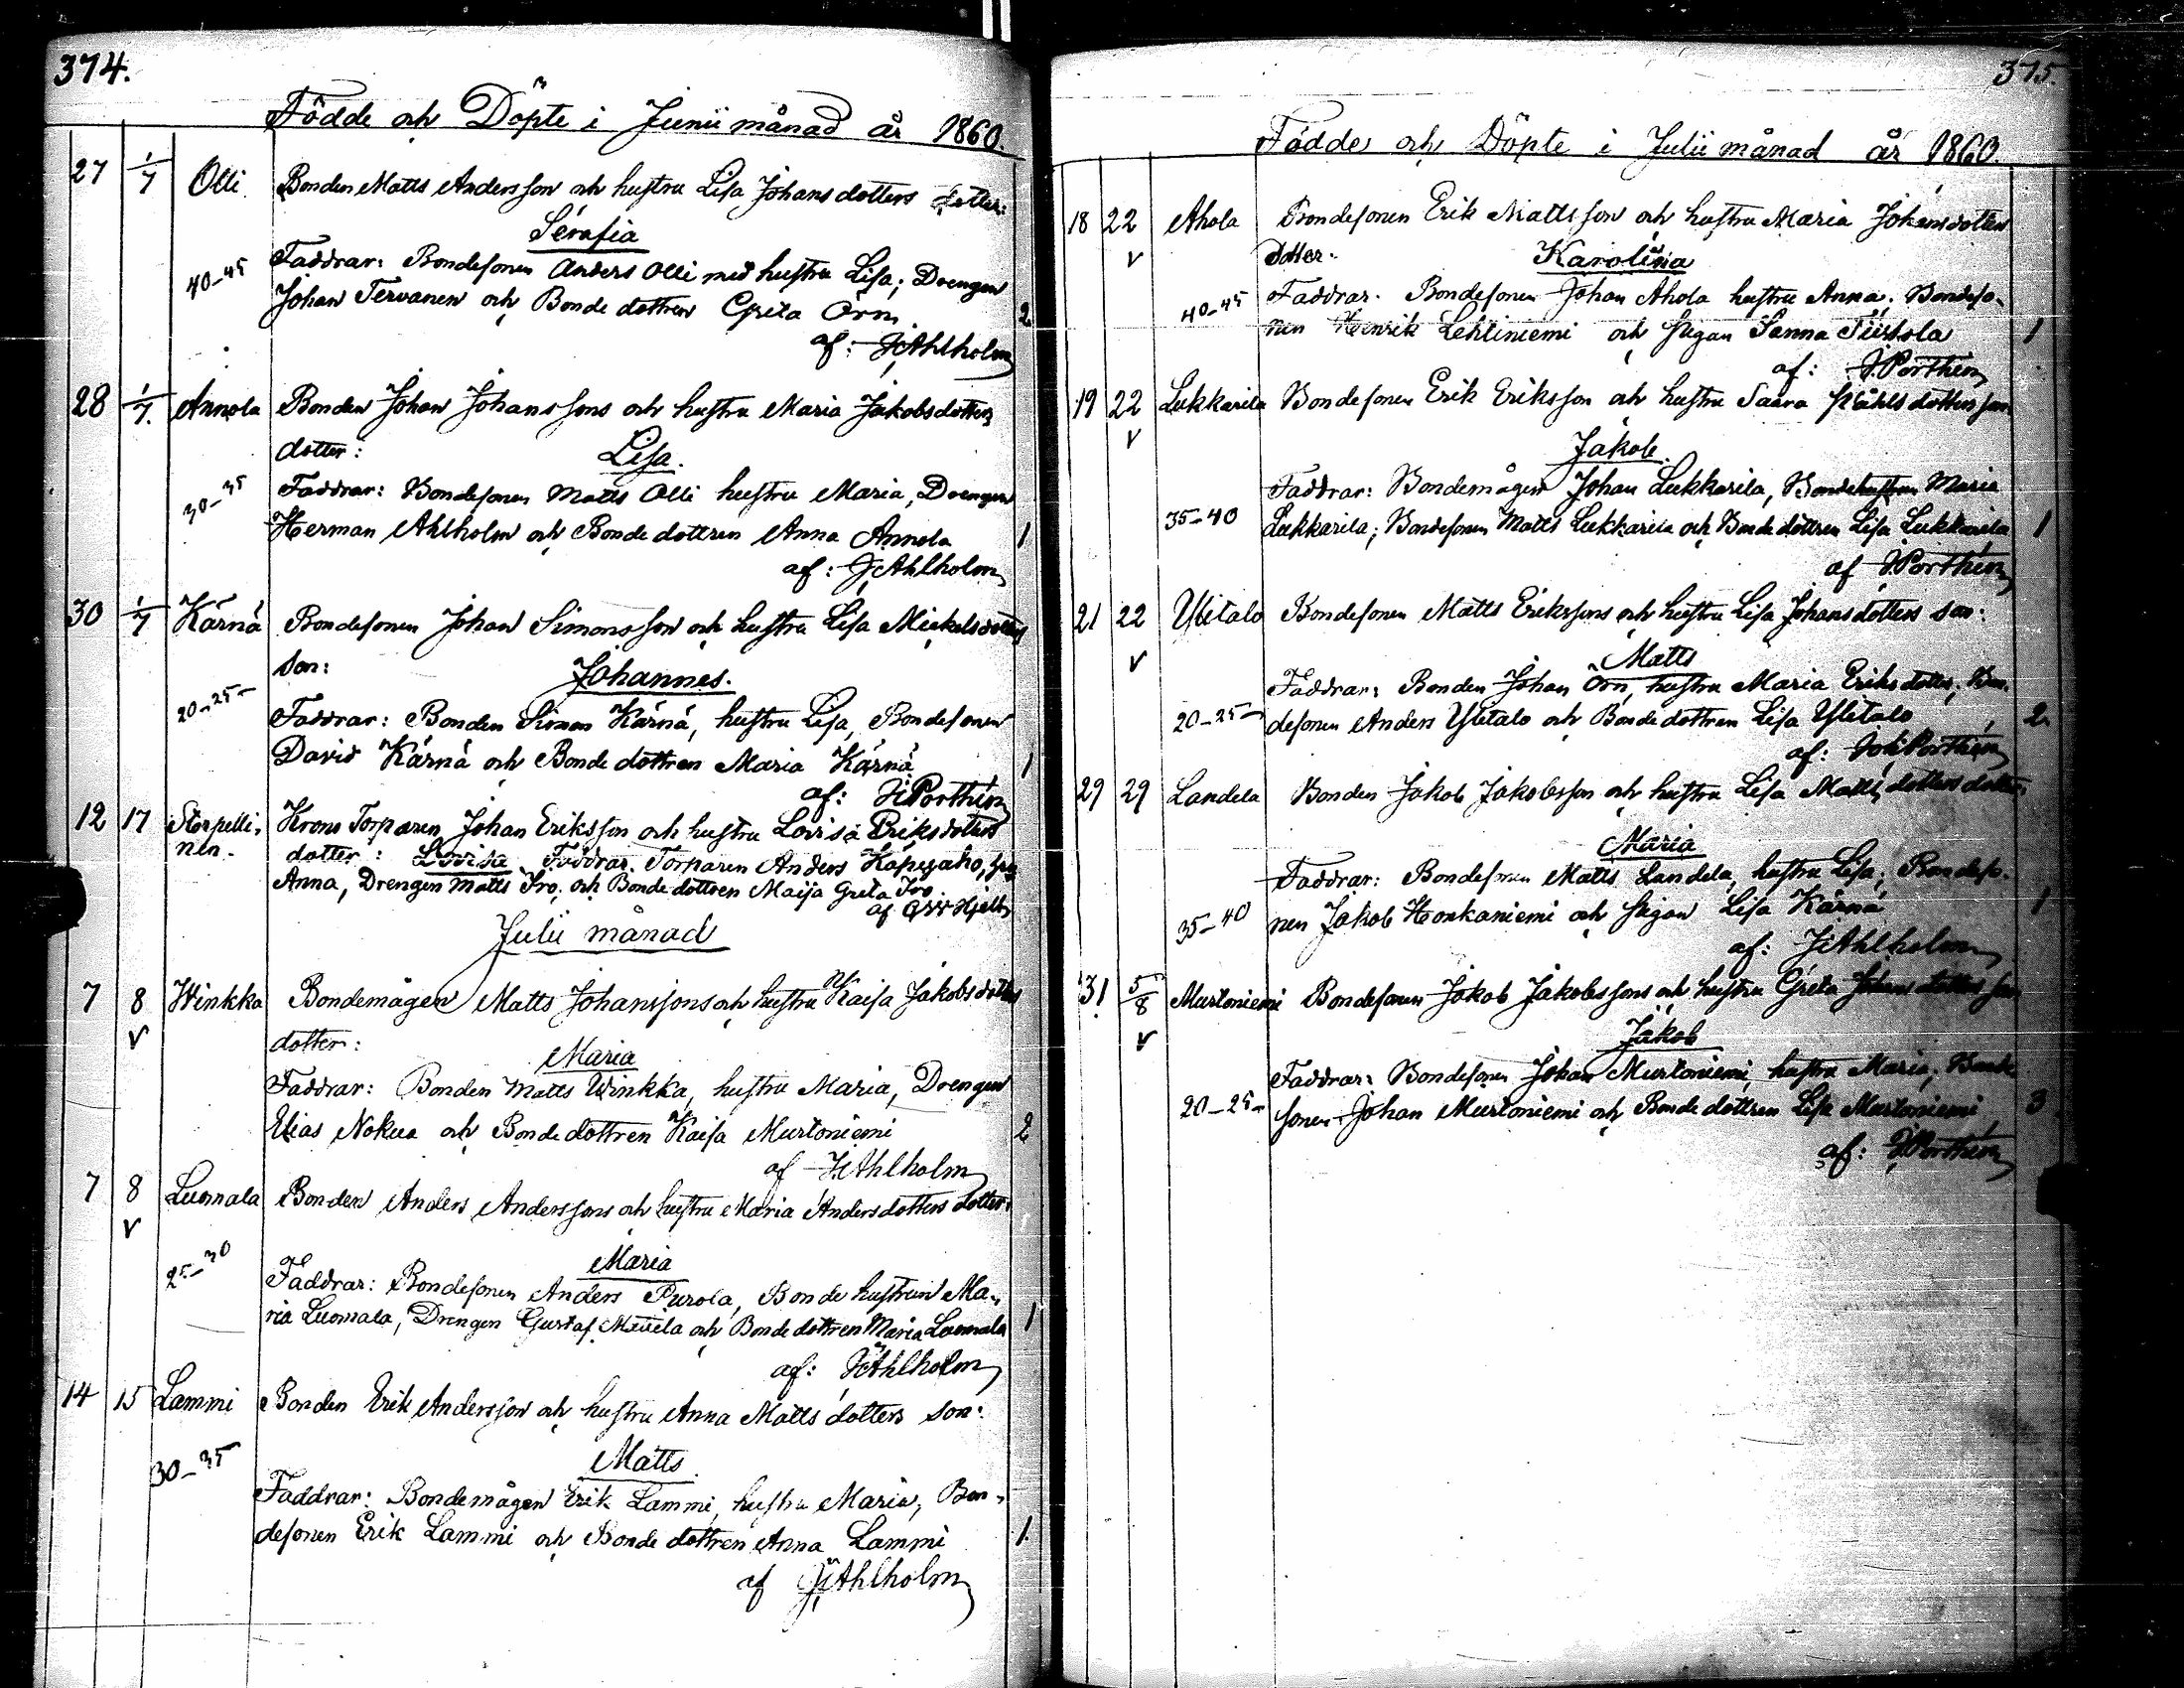 374.
Födde och Döpte i Junii månad år 1860.
27 1/7 Olli Bonden Matts Andersson och hustru Lisa Johansdotters dotter:
Serafia
40-45 Faddrar: Bondesonen Anders Olli med hustru Lisa; Drengen
Johan Tervanen och Bondedottren Greta Örn 2
af: J Ahlholm
28 1/7. Annola Bonden Johan Johanssons och hustru Maria Jakobsdotters
dotter: Lisa.
30-35 Faddrar: Bondesonen Matts Olli hustru Maria, Drengen
Herman Ahlholm och Bondedottren Anna Annola 1
af: J Ahlholm
30 1/7 Kärnä Bondesonen Johan Simonsson och hustru Lisa Mickelsdotters
son: Johannes.
20-25 Faddrar: Bonden Simon Kärnä, hustru Lisa, Bondesonen
David Kärnä och Bondedottren Maria Kärnä 1
af: J Porthén
12 17 Storpelli-
nen. Krono Torparen Johan Eriksson och hustru Lovisa Eriksdotters
dotter: Lovisa Faddrar. Torparen Anders Kapeyaho,
Anna, Drengen Matts Iro och Bondedottren Maija Greta Iro.
af Hjelt
Julii månad
7 8 Winkka Bondemågen Matts Johanssons och hustru Kaisa Jakobsdotters
dotter: Maria
Faddrar: Bonden Matts Winkka, hustru Maria, Drengen
Elias Nokua och Bondedottren Kaisa Murtoniemi 2
af J Ahlholm
7 8 Luomala Bonden Anders Anderssons och hustru Maria Andersdotters dotter:
Maria
25-30 Faddrar: Bondesonen Anders Purola, Bondehustrun Ma-
ria Luomala, Drengen Gustaf Mattila och Bondedottren Maria Luomala 1
af: J Ahlholm
14 15 Lammi Bonden Erik Andersson och hustru Anna Mattsdotters son:
Matts
30-35 Faddrar: Bondemågen Erik Lammi, hustru Maria, Bon-
desonen Erik Lammi och Bondedottren Anna Lammi 1.
af J Ahlholm
375.
Födde och Döpte i Julii månad år 1860.
18 22 Ahola Bondesonen Erik Mattsson och hustru Maria Johansdotters
dotter. Karolina
40-45 Faddrar. Bondesonen Johan Ahola hustru Anna. Bondeso-
nen Henrik Lehtiniemi och Pigan Sanna Tuistola 1
af: J. Porthén
19 22 Lukkarila Bondesonen Erik Eriksson och hustru Saara Påhlsdotters son
Jakob.
Faddrar: Bondemågen Johan Lukkarila, Bondehustrun Maria
35-40 Lukkarila; Bondesonen Matts Lukkarila och Bondedottren Lisa Lukkarila 1
af J Porthén
21 22 Ylitalo Bondesonen Matts Erikssons och hustru Lisa Johansdotters son:
Matts
Faddrar: Bonden Johan Örn, hustru Maria Eriksdotter, Bon-
20-25 desonen Anders Ylitalo och Bondedottren Lisa Ylitalo 2.
af: Joh Porthén
29 29 Landela Bonden Jakob Jakobsson och hustru Lisa Mattsdotters dotter
Maria
Faddrar: Bondesonen Matts Landela, hustru Lisa; Bondeso-
35-40 nen Jakob Honkaniemi och Pigan Lisa Kärnä 1
af: J Ahlholm
31 5/8 Murtoniemi Bondesonen Jakob Jakobssons och hustru Greta Johansdotters son
Jakob
Faddrar: Bondesonen Johan Murtoniemi, hustru Maria; Bonde
20-25 sonen Johan Murtoniemi och Bondedottren Lisa Murtoniemi 3
af: J Porthén